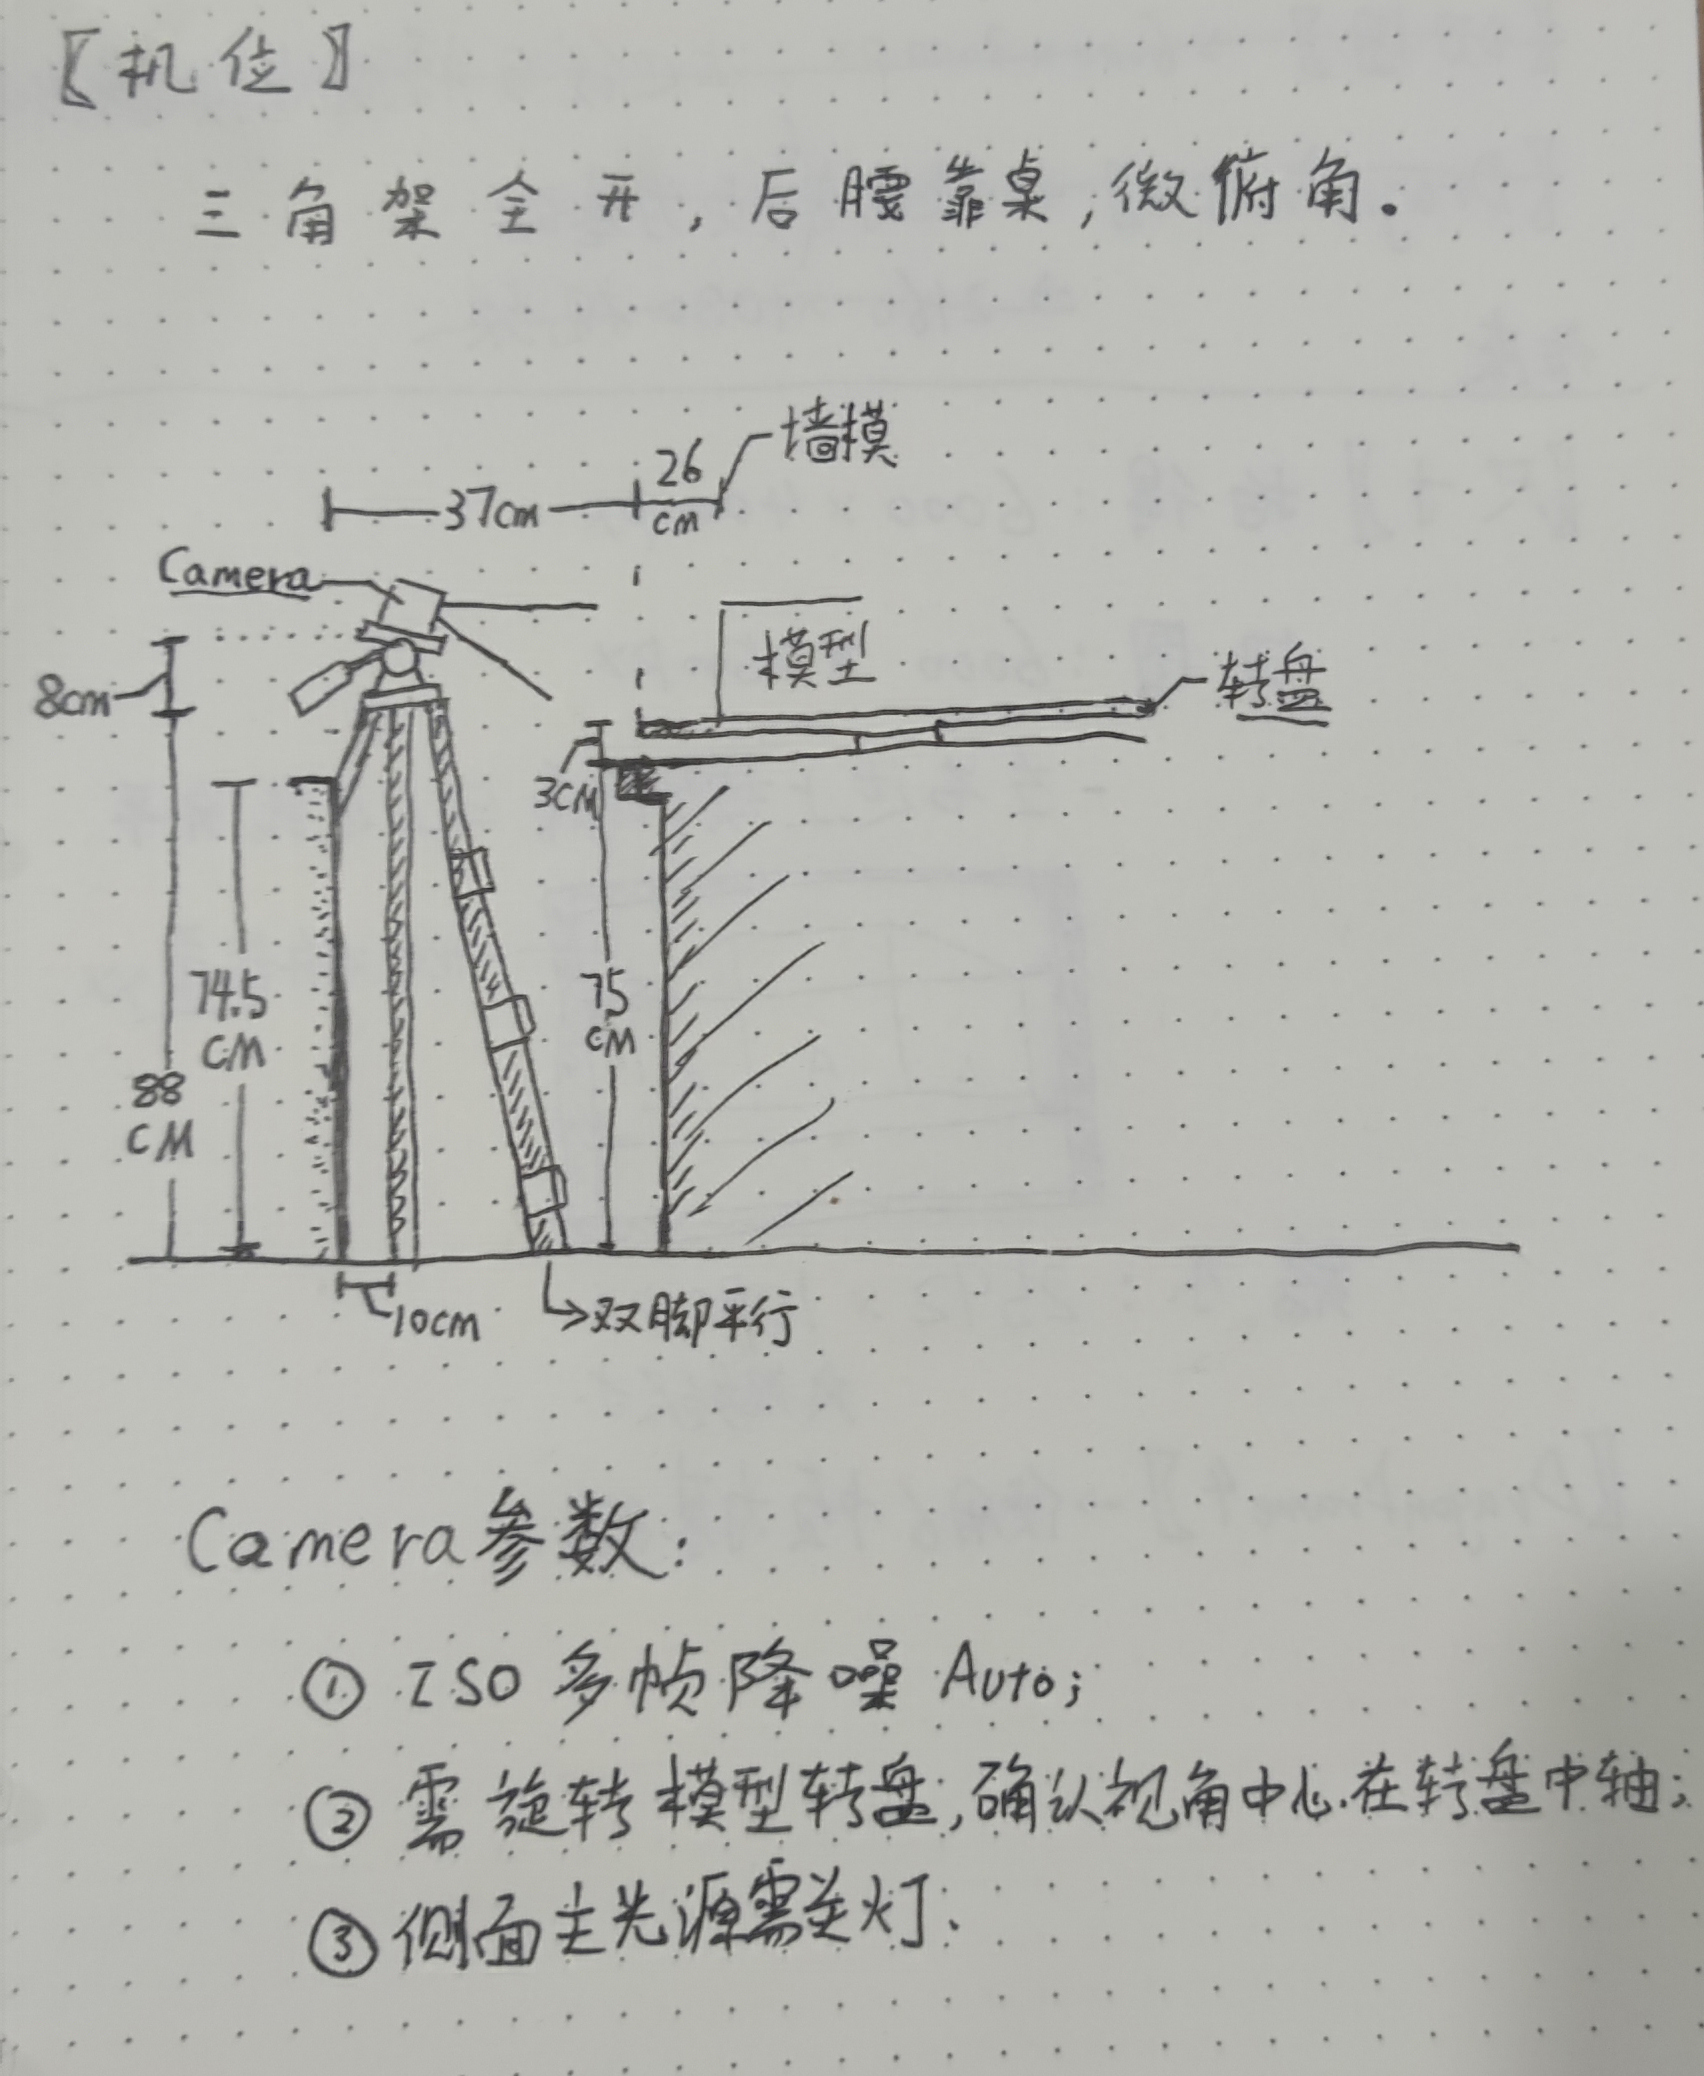 〖机位〗
三角架全开，后腰靠桌，微俯角。
墙模
26
cm
37cm
Camera
模型
转盘
8cm
3CM
74.5
CM
75
CM
88
CM
10cm
双脚平行
Camera参数：
① ISO 多帧降噪 Auto；
② 需旋转模型转盘，确认视角中心在转盘中轴；
③ 侧面主光源需关灯.